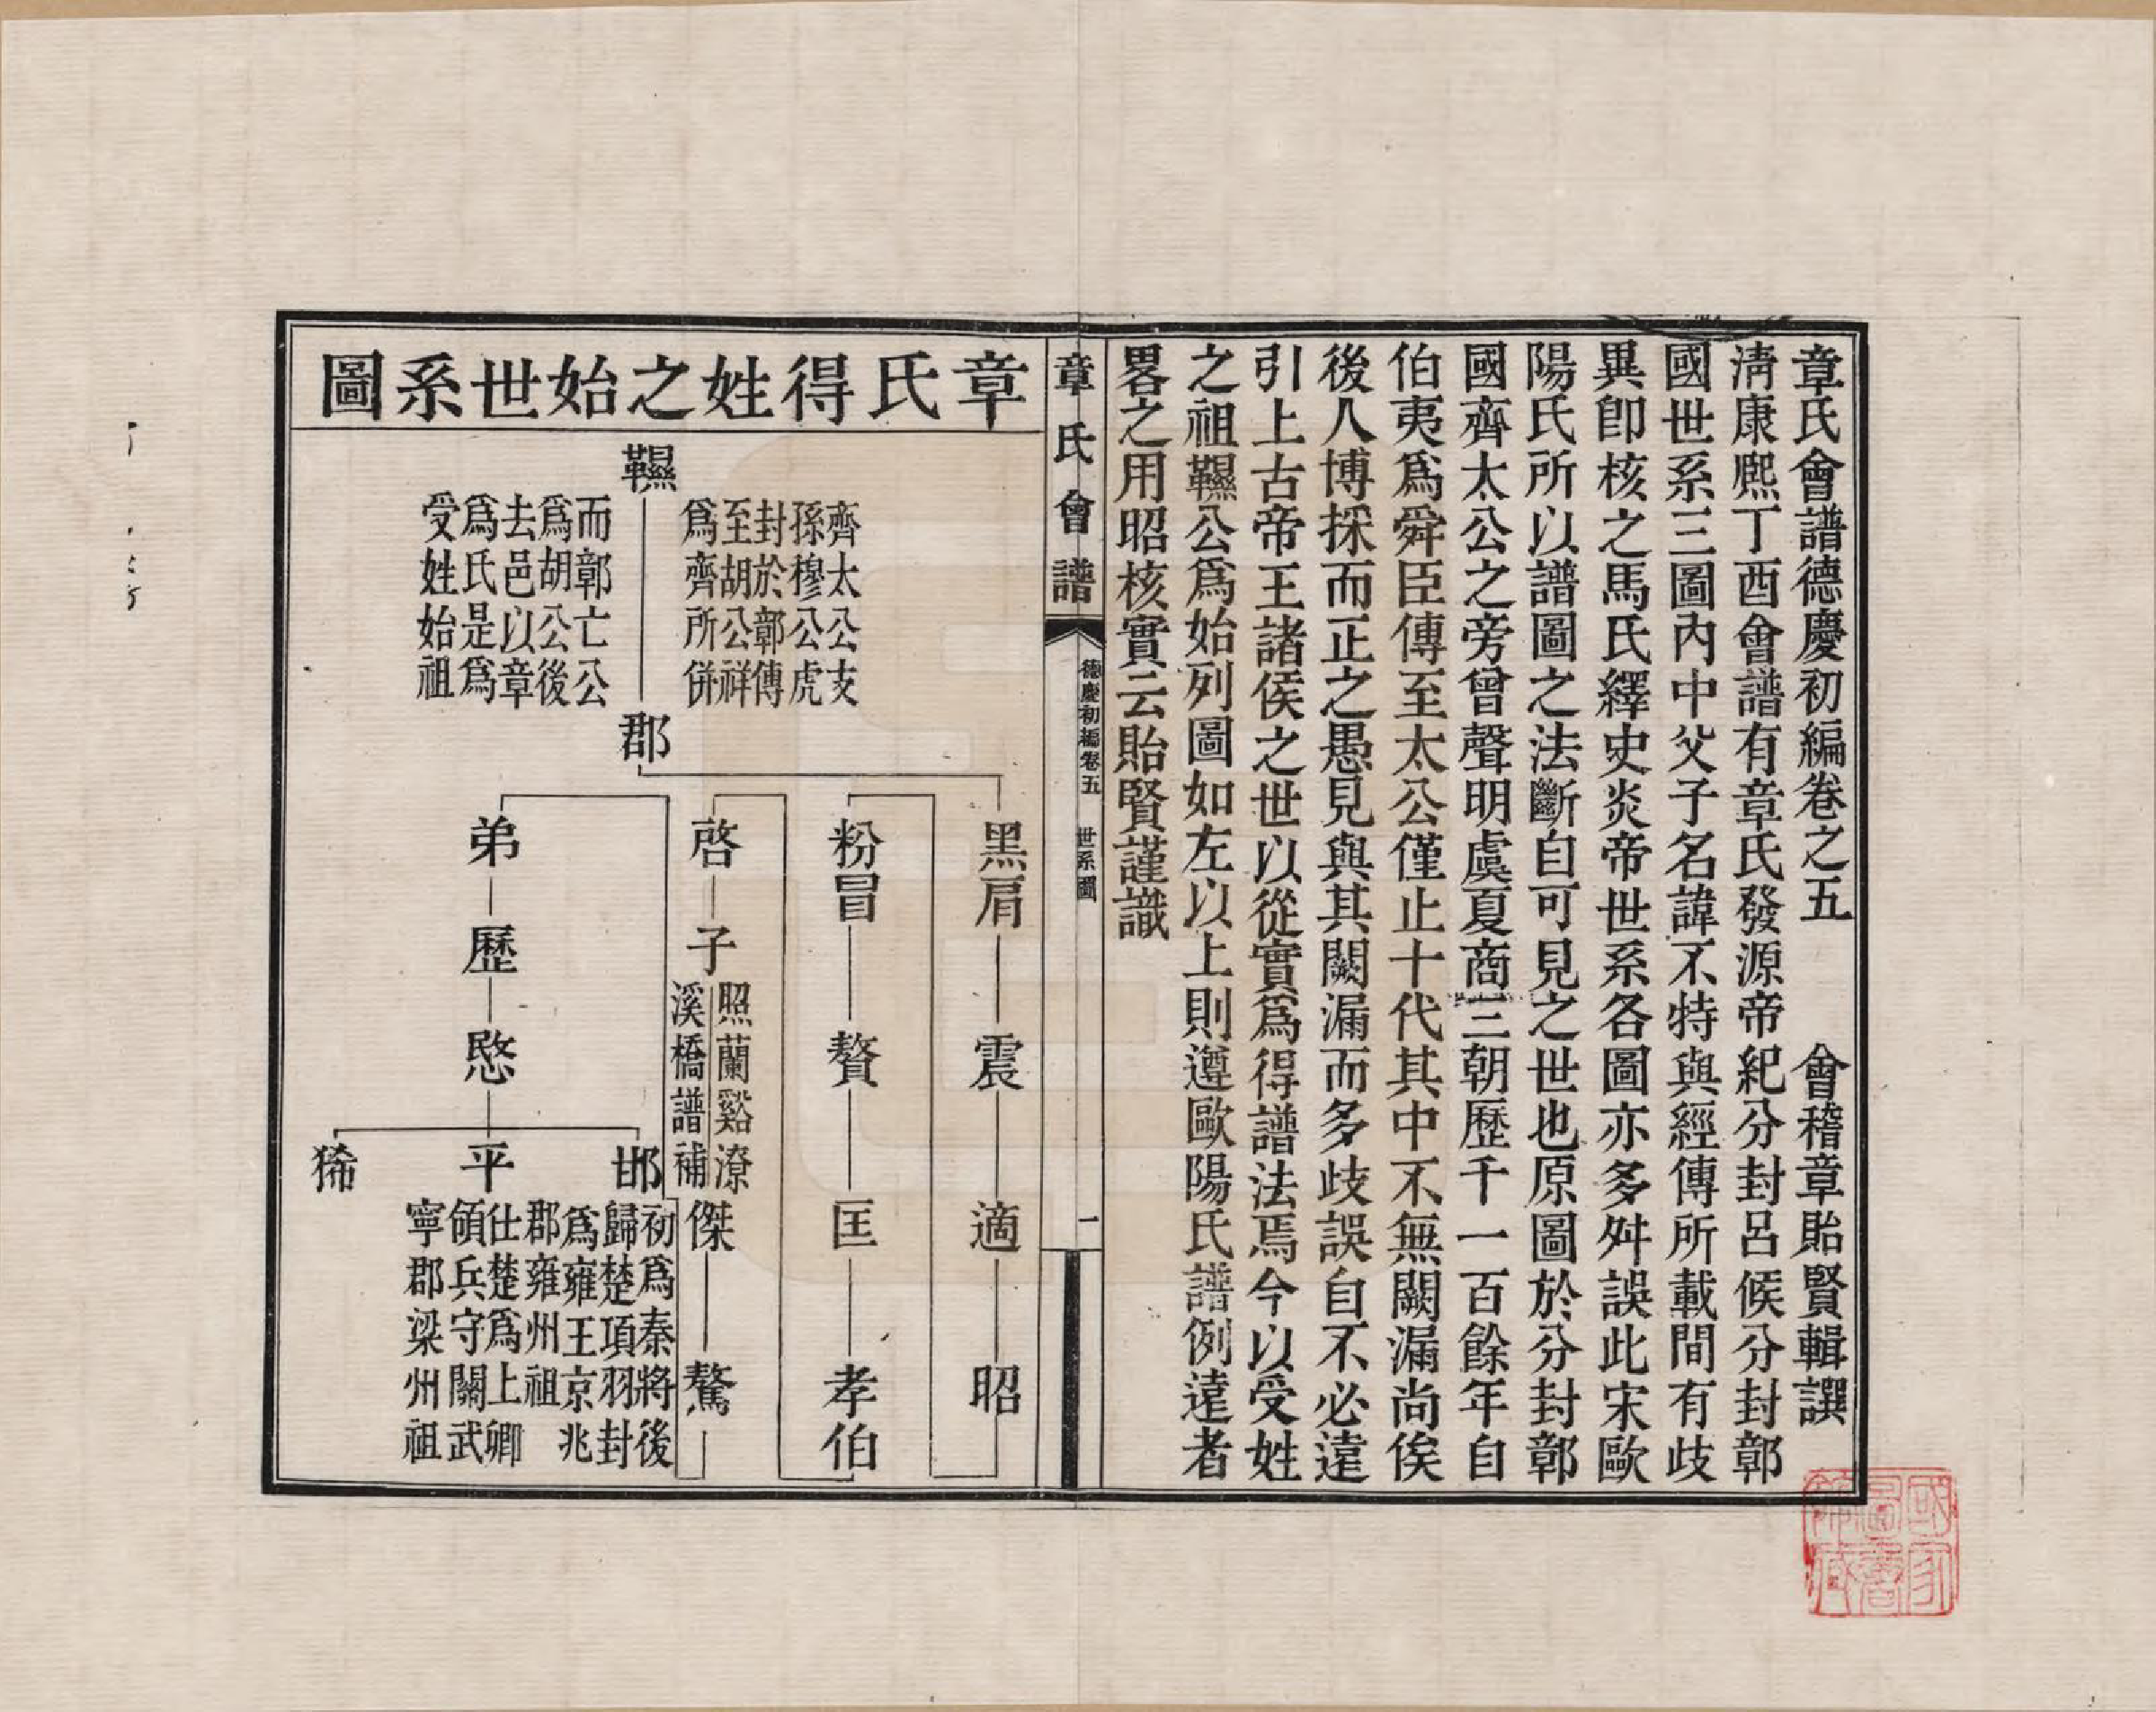 章氏會譜德慶初編卷之五　會稽章貽賢輯譔
淸康熙丁酉會譜有章氏發源帝紀分封呂侯分封鄣
國世系三圖內中父子名諱不特與經傳所載間有歧
異卽核之馬氏繹史炎帝世系各圖亦多舛誤此宋歐
陽氏所以譜圖之法斷自可見之世也原圖於分封鄣
國齊太公之旁曾聲明虞夏商三朝歷千一百餘年自
伯夷爲舜臣傳至太公僅止十代其中不無闕漏尚俟
後人博採而正之愚見與其闕漏而多歧誤自不必遠
引上古帝王諸侯之世以從實爲得譜法焉今以受姓
之祖韅公爲始列圖如左以上則遵歐陽氏譜例遠者
畧之用昭核實云貽賢謹識
章氏會譜
德慶初編卷五　世系圖
一
章氏得姓之始世系圖
韅
齊太公支
孫穆公虎
封於鄣傳
至胡公祥
爲齊所併
而鄣亡公
爲胡公後
去邑以章
爲氏是爲
受姓始祖
郡
黑肩
震
適
昭
粉冒
贅
匡
孝伯
啓
子
照蘭谿潦
溪橋譜補
傑
驁
弟
歷
愍
邯
初爲秦將後
歸楚項羽封
爲雍王京兆
郡雍州祖
平
仕楚爲上卿
領兵守關武
寧郡梁州祖
狶
國家圖書館藏